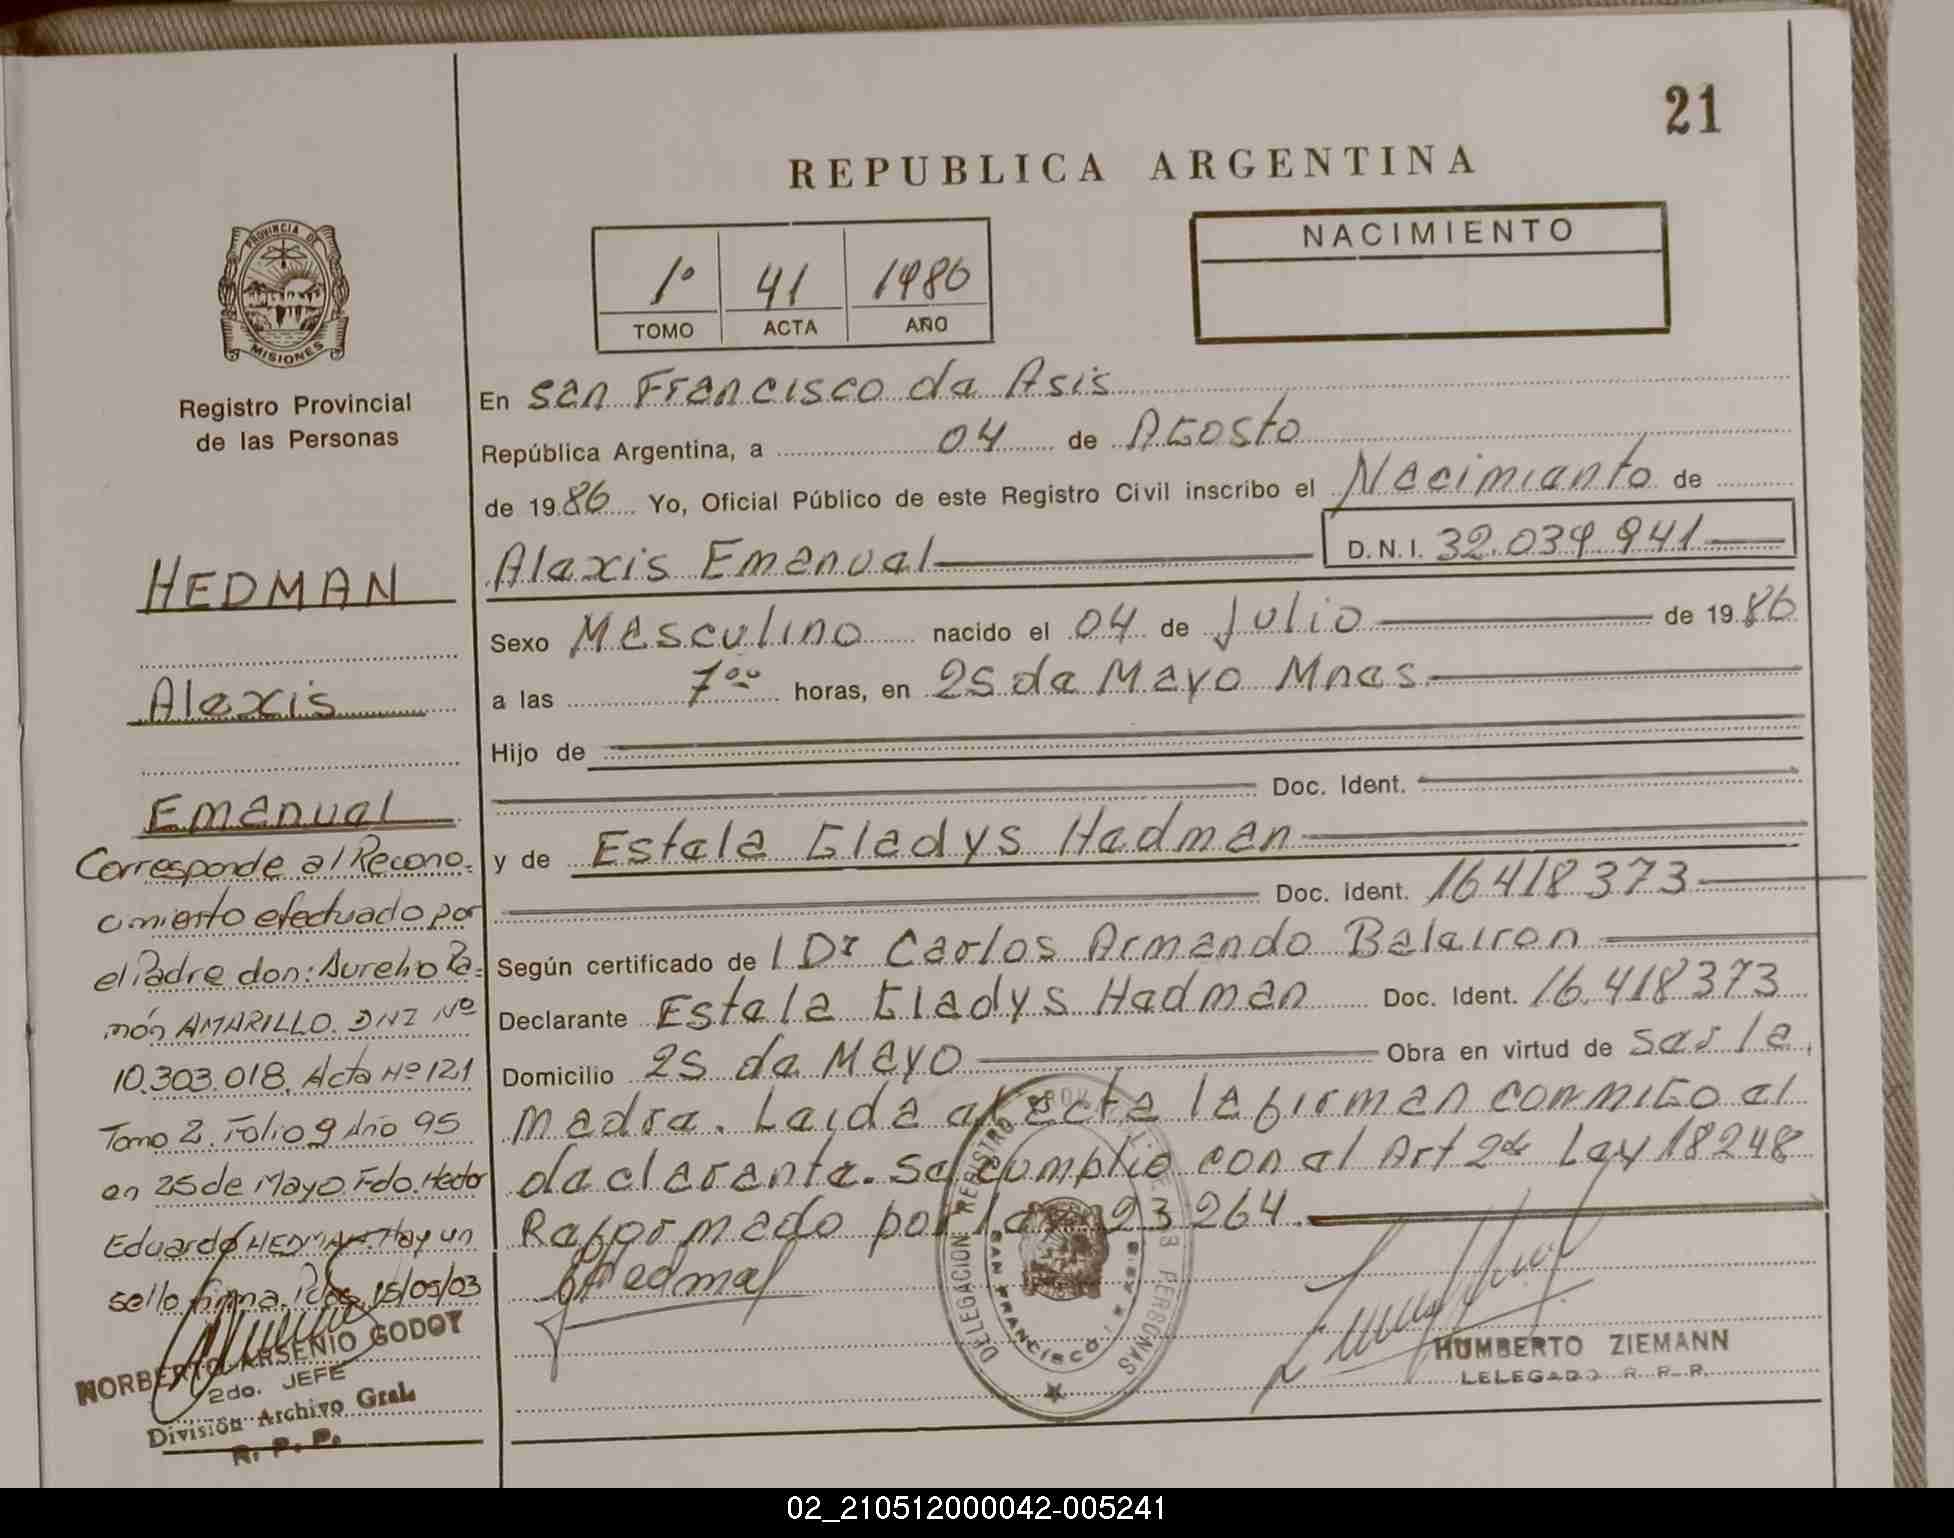 21
REPUBLICA ARGENTINA
PROVINCIA DE
MISIONES
Registro Provincial
de las Personas
1° 41 1986
TOMO ACTA AÑO
NACIMIENTO
HEDMAN
Alexis
Emanuel
Corresponde al Recono=
cimiento efectuado por
el Padre don: Aurelio Ra=
món AMARILLO. DNI Nº
10.303.018. Acta Nº 121
Tomo 2. Folio 9 Año 95
en 25 de Mayo. Fdo. Hector
Eduardo HEDMAN. Hay un
sello firma. Pdas. 15/09/03
NORBERTO ARSENIO GODOY
2do. JEFE
División Archivo Gral.
R. P. P.
En San Francisco de Asis
República Argentina, a 04 de Agosto
de 1986 Yo, Oficial Público de este Registro Civil inscribo el Nacimiento de
Alexis Emanuel D.N.I. 32.039.941
Sexo Masculino nacido el 04 de Julio de 1986
a las 7°° horas, en 25 de Mayo Mnes.
Hijo de
Doc. Ident.
y de Estela Gladys Hedman
Doc. Ident. 16418373
Según certificado de l Dr Carlos Armando Balairon
Declarante Estela Gladys Hedman Doc. Ident. 16.418373
Domicilio 25 de Mayo Obra en virtud de ser la
madre. Leida el acta la firman conmigo el
declarante. Se cumplio con el Art 2do Ley 18248
Reformado por ley 23264.
Hedman
DELEGACION REGISTRO PROV. DE LAS PERSONAS
SAN FRANCISCO DE ASIS
HUMBERTO ZIEMANN
DELEGADO R. P. P.
02_210512000042-005241